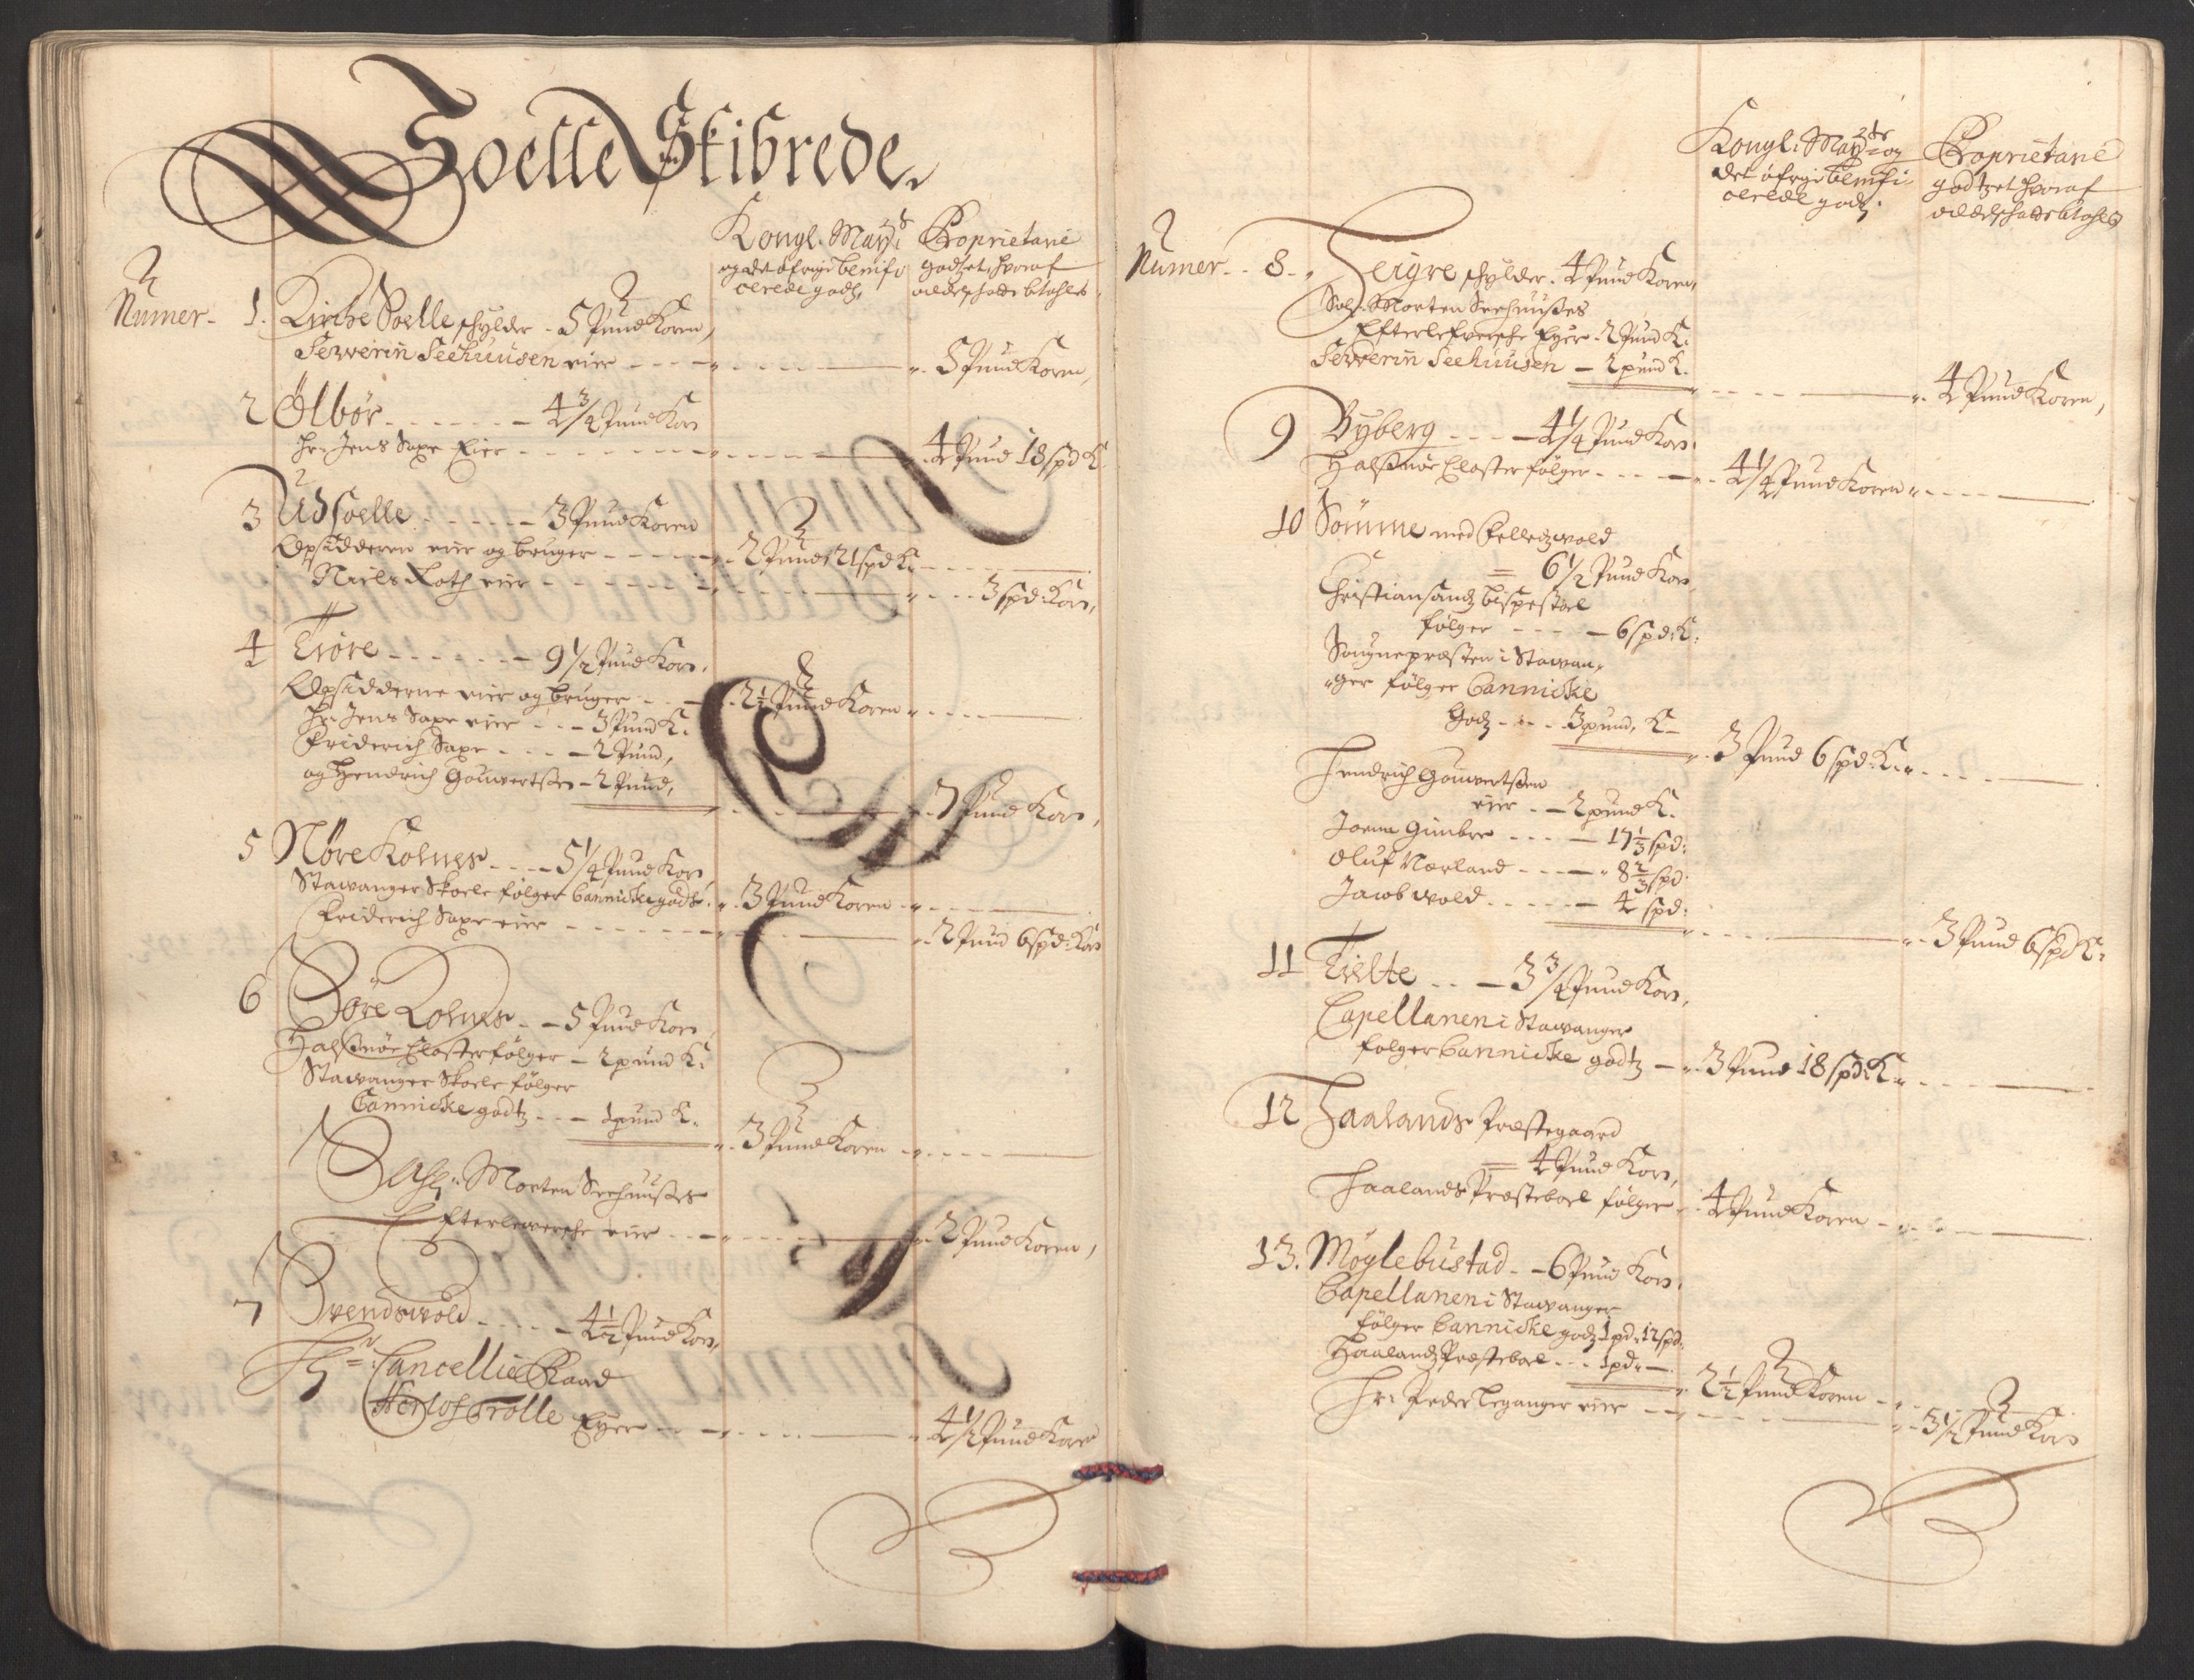 Soelle Skibrede.
Kongl. Mayts
og det øfrige benifi
cerede godz,
Proprietarie
godzet, hvoraf
odelschatt betahles
Numer. 1. Kirche Soelle schylder - 5 Pund Koren,
Severin Seehuusen eier - - - 5 Pund Koren,
2 Ølbør - - - - 4 3/4 Pund Korn
Hr. Jens Saxe Eier - - - 4 Pund 18 spd K
3 Udsoelle - - - - 3 Pund Koren
Opsidderen eier og bruger - - - 2 Pund 21 spd K.
Niels Roth eier - - - 3 spd: Korn,
4 Tiøre - - - - 9 1/2 Pund Korn.
Opsidderne eier og bruger - - - 2 1/2 Pund Koren
Hr. Jens Saxe eier - - - 3 Pund K.
Friderich Saxe - - - - 2 Pund,
og Hendrich Gouwertsen - 2 Pund,
7 Pund Korn,
5 Nøre Kolnes - - - 5 1/4 Pund Korn
Stawanger Skoele følger Cannicke godz - 3 Pund Koren
Friderich Saxe eier - - - - 2 Pund 6 spd: Korn
6 Søre Kolnes - - 5 Pund Korn
Halsnøe Closter følger - 2 pund K.
Stawanger Skoele følger
Cannicke godtz - - - 1 pund K.
3 Pund Koren
Sahl: Morten Seehuuses
Efterlewersche eier - - - 2 Pund Koren,
7 Svendswold - - - - 4 1/2 Pund Korn,
Hr: Cancellie Raad
Herlof Trolle Eyer - - - 4 1/2 Pund Koren
Kongl. Mayts og
det øfrige benifi
cerede godz.
Proprietarie
godtzet hvoraf
odelschatt betahles
Numer - - 8 - Teigre schylder - 4 Pund Koren,
Sal: Morten Seehuuses
Efterlefversche Eyer - 2 Pund K.
Severin Seehuusen - 2 pund K.
4 Pund Koren,
9 Byberg - - - 4 1/4 Pund Korn.
Halsnøe Closter følger - - - 4 1/4 Pund Koren
10 Sømme med Felletzwold
= 6 1/2 Pund Korn
Christiansandz bispestoel
følger - - - 6 spd: K:
Sougnepræsten i Stawan-
-ger følger Cannicke
Godz - - - 3 pund, K -
3 Pund 6 spd: K.
Hendrich Gouwertsen
eier - - 2 pund K.
Joren Gimbre - - - 17 1/3 spd:
Oluf Nærland - - - 8 2/3 spd.
Jacob wold - - - - 4 spd:
3 Pund 6 spd K:
11 Tielte - - - 3 3/4 Pund Korn.
Capellanen i Stawanger
følger Cannicke godtz - 3 Pund 18 spd: K
12 Haalands Præstegaard
= 4 Pund Korn,
Haalands Præsteboel følger - 4 Pund Koren -
13. Møglebustad - - 6 Pund Korn.
Capellanen i Stawanger
følger Cannicke godz 1 pd: 12 spd.
Haalandz Præsteboel - - - 1 pd: -
2 1/2 Pund Koren
Hr: Peder Leganger eier - - - 3 1/2 Pund Korn